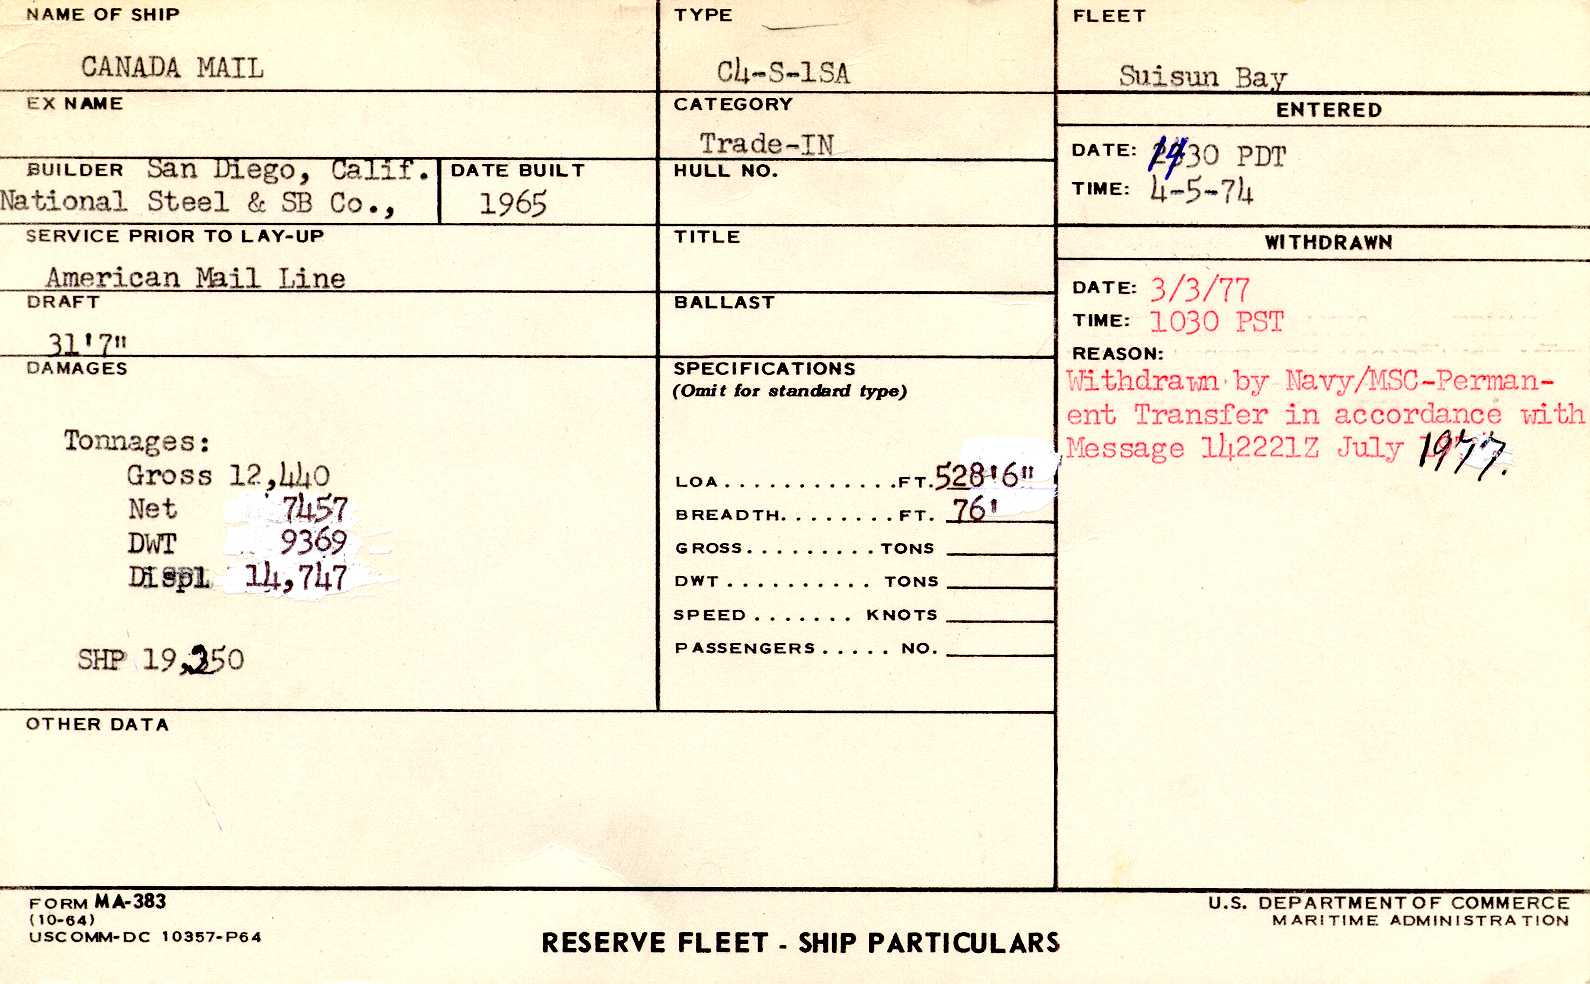 NAME OF SHIP
CANADA MAIL
TYPE
C4-S-1SA
FLEET
Suisun Bay
EX NAME
CATEGORY
Trade-IN
ENTERED
DATE: 1430 PDT
TIME: 4-5-74
BUILDER San Diego, Calif.
National Steel & SB Co.,
DATE BUILT
1965
HULL NO.
SERVICE PRIOR TO LAY-UP
American Mail Line
TITLE
WITHDRAWN
DATE: 3/3/77
TIME: 1030 PST
REASON:
Withdrawn by Navy/MSC-Perman-
ent Transfer in accordance with
Message 142221Z July 1977.
DRAFT
31'7"
BALLAST
DAMAGES
Tonnages:
Gross 12,440
Net 7457
DWT 9369
Displ 14,747
SHP 19,250
SPECIFICATIONS
(Omit for standard type)
LOA............FT. 528'6"
BREADTH........FT. 76'
GROSS.........TONS
DWT.......... TONS
SPEED....... KNOTS
PASSENGERS..... NO.
OTHER DATA
FORM MA-383
(10-64)
USCOMM-DC 10357-P64
RESERVE FLEET - SHIP PARTICULARS
U.S. DEPARTMENT OF COMMERCE
MARITIME ADMINISTRATION